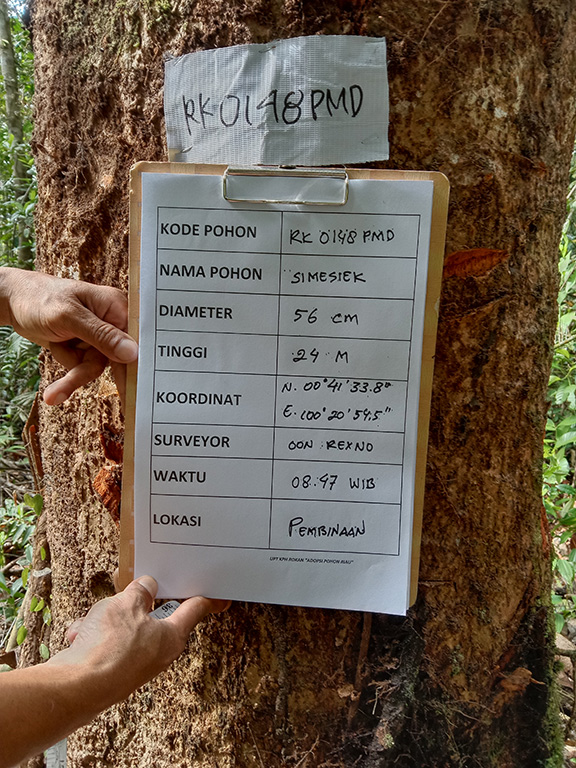 RK0148PMD
KODE POHON RK 0148 PMD
NAMA POHON SIMESIEK
DIAMETER 56 cm
TINGGI 24 M
KOORDINAT N. 00°41'33.8"
E. 100°20'54.5"
SURVEYOR OON REXNO
WAKTU 08:47 WIB
LOKASI PEMBINAAN
UPT KPH ROKAN "ADOPSI POHON RIAU"